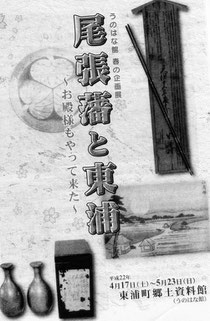 うのはな館 春の企画展
尾張藩と東浦
～お殿様もやって来た～
平成22年
4月17日(土)～5月23日(日)
東浦町郷土資料館
(うのはな館)